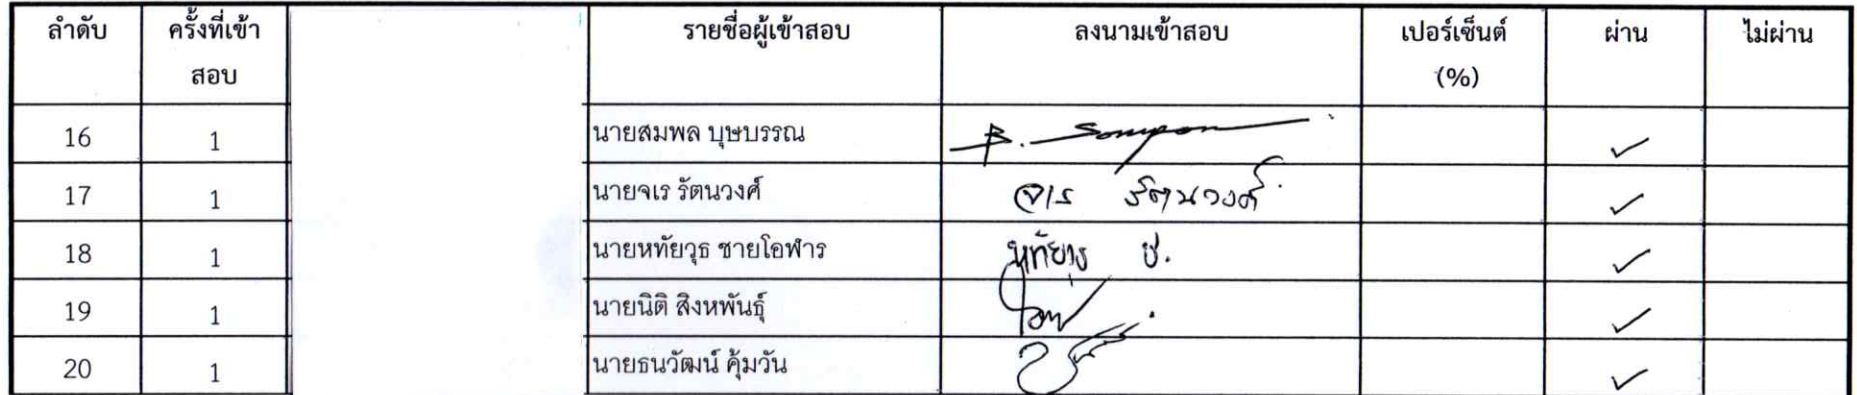 ลำดับ ครั้งที่เข้าสอบ รายชื่อผู้เข้าสอบ ลงนามเข้าสอบ เปอร์เซ็นต์ (%) ผ่าน ไม่ผ่าน
16 1 นายสมพล บุษบรรณ B. Sompon ✓
17 1 นายจเร รัตนวงศ์ จเร รัตนวงศ์ ✓
18 1 นายหทัยวุธ ชายโอฬาร หทัยวุธ ช. ✓
19 1 นายนิติ สิงหพันธุ์ ✓
20 1 นายธนวัฒน์ คุ้มวัน ✓